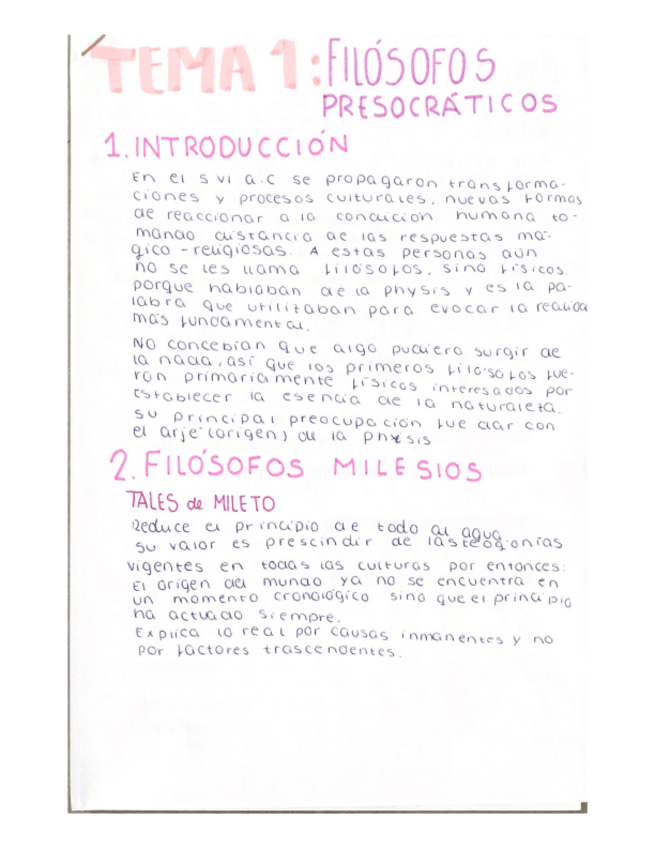 TEMA 1: FILÓSOFOS
PRESOCRÁTICOS
1. INTRODUCCIÓN
En el S VI a.C se propagaron transforma-
ciones y procesos culturales, nuevas formas
de reaccionar a la condición humana to-
mando distancia de las respuestas má-
gico-religiosas. A estas personas aún
no se les llama filósofos, sino físicos.
porque hablaban de la physis y es la pa-
labra que utilizaban para evocar la realida
más fundamental.
NO concebían que algo pudiera surgir de
la nada, así que los primeros filósofos fue-
ron primariamente físicos interesados por
Establecer la esencia de la naturaleza.
su principal preocupación fue dar con
el arjé (origen) de la physis
2. FILÓSOFOS MILESIOS
TALES de MILETO
Reduce el principio de todo al agua
su valor es prescindir de las teogonías
vigentes en todas las culturas por entonces:
El origen del mundo ya no se encuentra en
un momento cronológico sino que el principio
ha actuado siempre.
Explica lo real por causas inmanentes y no
por factores trascendentes.